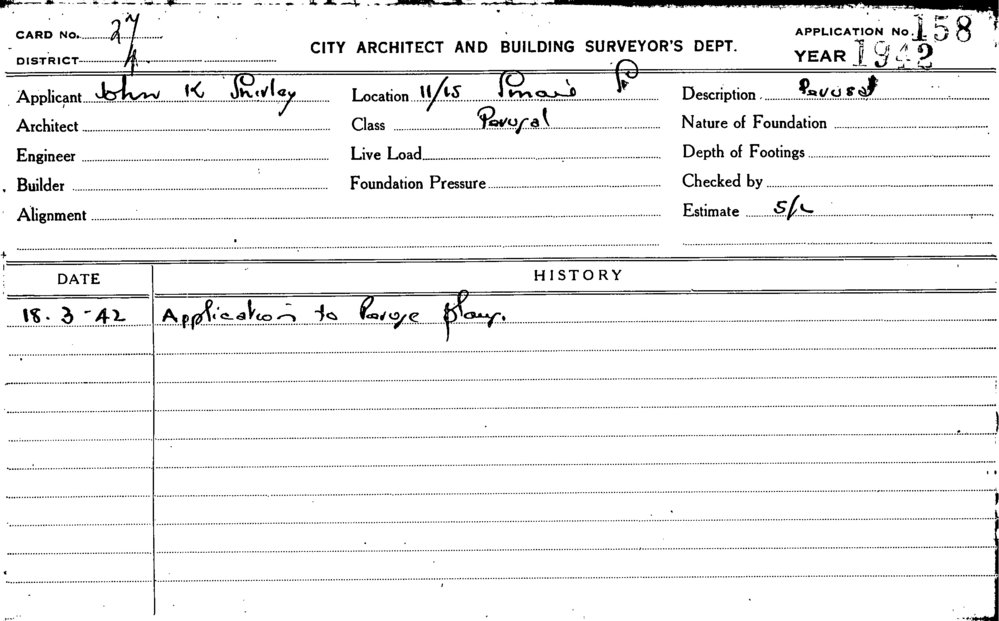 CARD No. 27
APPLICATION No. 158
CITY ARCHITECT AND BUILDING SURVEYOR'S DEPT.
DISTRICT
YEAR 1942
Applicant John K Shirley Location 11/15 Description Perusal
Architect Class Perusal Nature of Foundation
Engineer Live Load Depth of Footings
Builder Foundation Pressure Checked by
Alignment Estimate S/L
DATE HISTORY
18. 3 - 42 Application to Peruse plans.